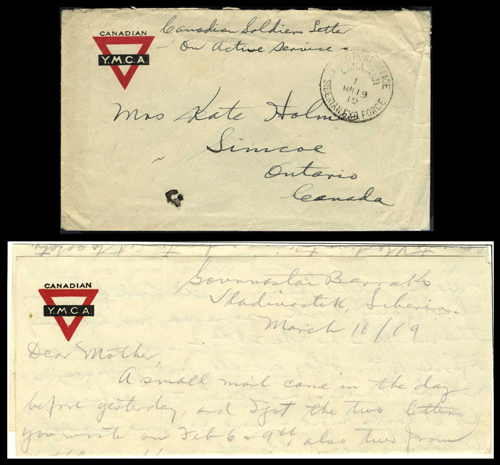 CANADIAN
Y.M.C.A.
Canadian Soldiers Letter
On Active Service
CANADIAN
1
MR 19
19
SIBERIAN EXP FORCE
Mrs Kate Holm
Simcoe
Ontario
Canada
CANADIAN
Y.M.C.A
Barracks
Vladivostok, Siberia
March 16/19
Dear Mother,
A small mail came in the day
before yesterday, and I got the two letters
you wrote on Feb 6 & 9th, also two from